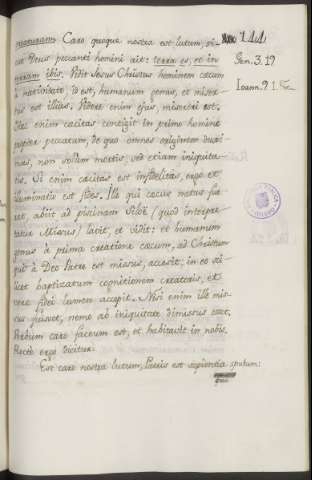 creaturam. Caro quoque nostra est lutum, si-
cut Deus peccanti homini ait: terra es, et in
terram ibis. Vidit Jesus Christus hominem cæcum
a nativitate, id est, humanum genus, et misera-
tus est illius. Videre enim ejus, misereri est.
Hæc enim cæcitas contigit in primo homine
propter peccatum, de quo omnes originem duxi-
mus, non solum mortis, sed etiam iniquita-
tis. Si enim cæcitas est infidelitas, ergo et
illuminatio est fides. Ille qui cæcus natus fue-
rat, abiit ad piscinam Siloë (quod interpre-
tatur Missus) lavit, et vidit: et humanum
genus a prima creatione cæcum, ad Christum
qui a Deo Patre est missus, accessit, in eo sci-
licet baptizatum cognitionem creatoris, et
veræ fidei lumen accepit. Nisi enim ille mis-
sus fuisset, nemo ab iniquitate dimissus esset.
Verbum caro factum est, et habitavit in nobis.
Recte ergo dicitur.
Est caro nostra lutum, Patris est sapientia sputum:
144
Gen. 3. 19
Ioann. 9. 1. &c